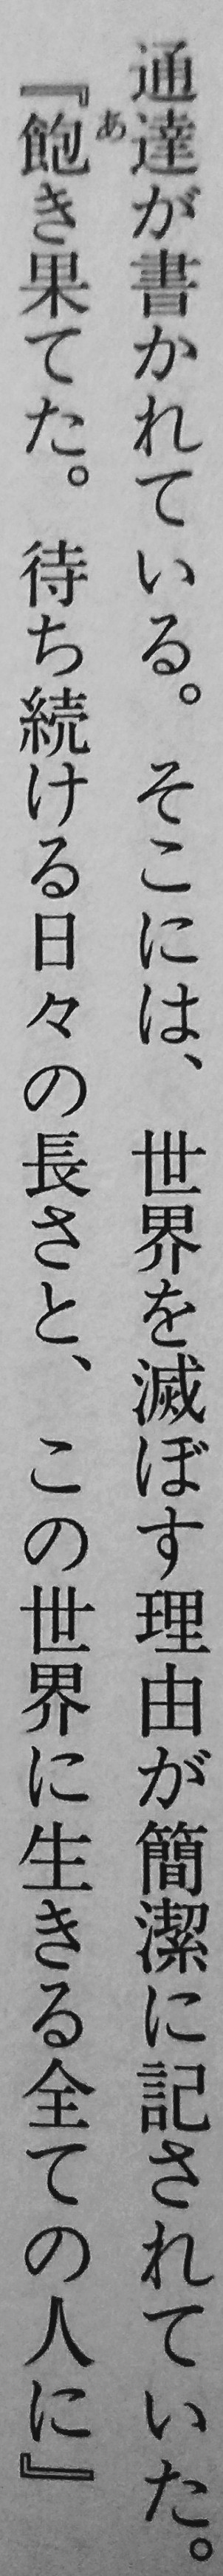 通達が書かれている。そこには、世界を滅ぼす理由が簡潔に記されていた。
『飽き果てた。待ち続ける日々の長さと、この世界に生きる全ての人に』
あ